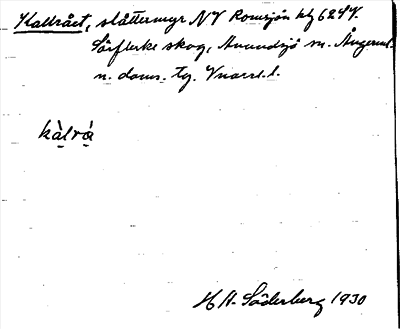 Kallrået, slåttermyr NV Romsjön hfg 624 V.
Sörflerke skog, Anundsjö sn. Ångerml.
n. doms. tg. Vnorrl. l.
kàlrá
H A. Söderberg 1930